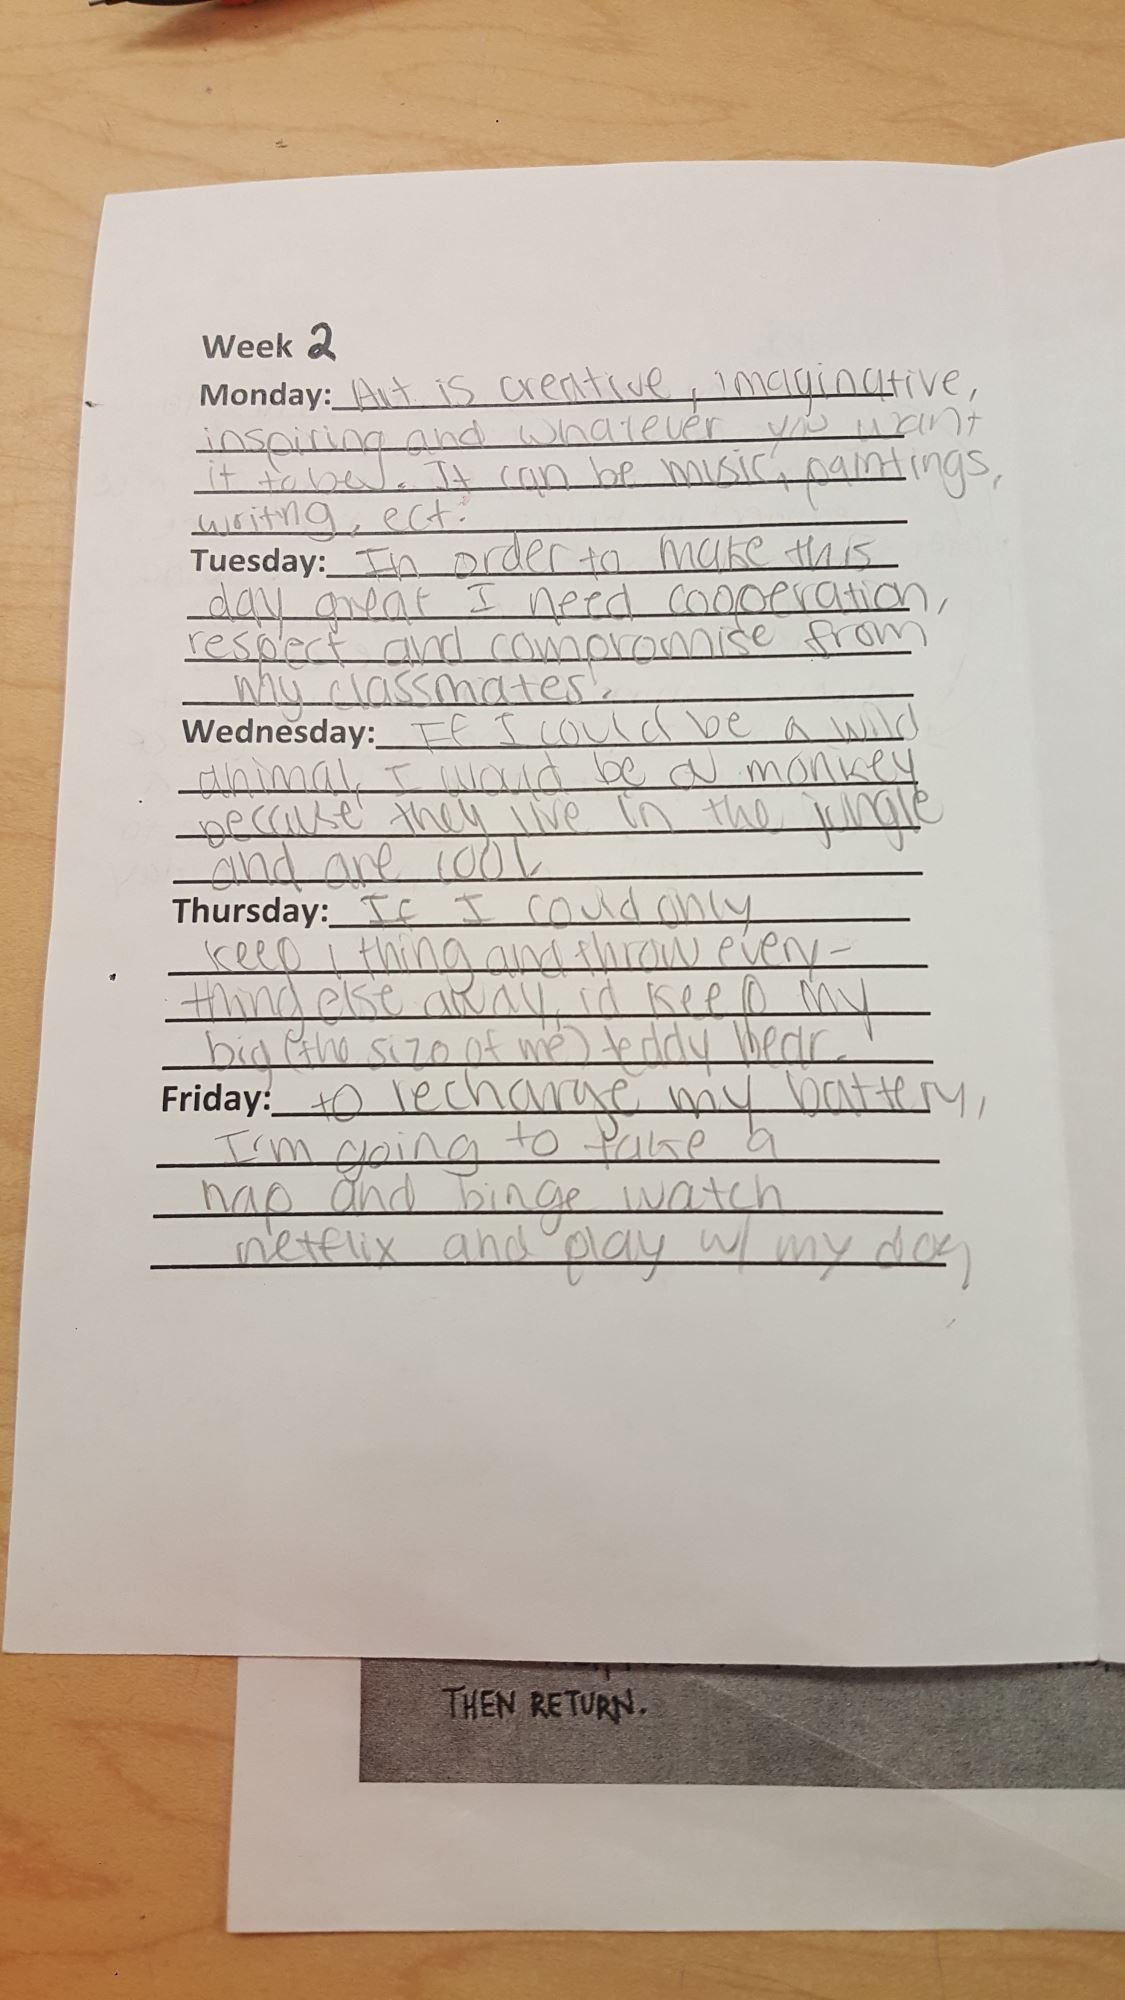 Week 2
Monday: Art is creative, imaginative,
inspiring and whatever you want
it to be. It can be music, paintings,
writing, ect.
Tuesday: In order to make this
day great I need cooperation,
respect and compromise from
my classmates.
Wednesday: If I could be a wild
animal, I would be a monkey
because they live in the jungle
and are cool
Thursday: If I could only
keep 1 thing and throw every-
thing else away, id keep my
big (the size of me) teddy bear.
Friday: to recharge my battery,
I'm going to take a
nap and binge watch
netflix and play w/ my dog
THEN RETURN.